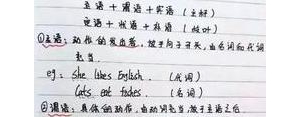 主语 + 谓语 + 宾语 (主干)
定语 + 状语 + 补语 (枝叶)
①主语:动作的发出者,放于句子开头,由名词和代词
充当.
eg: She likes English. (代词)
Cats eat fishes. (名词)
②谓语:具体的动作,由动词充当,放于主语之后.